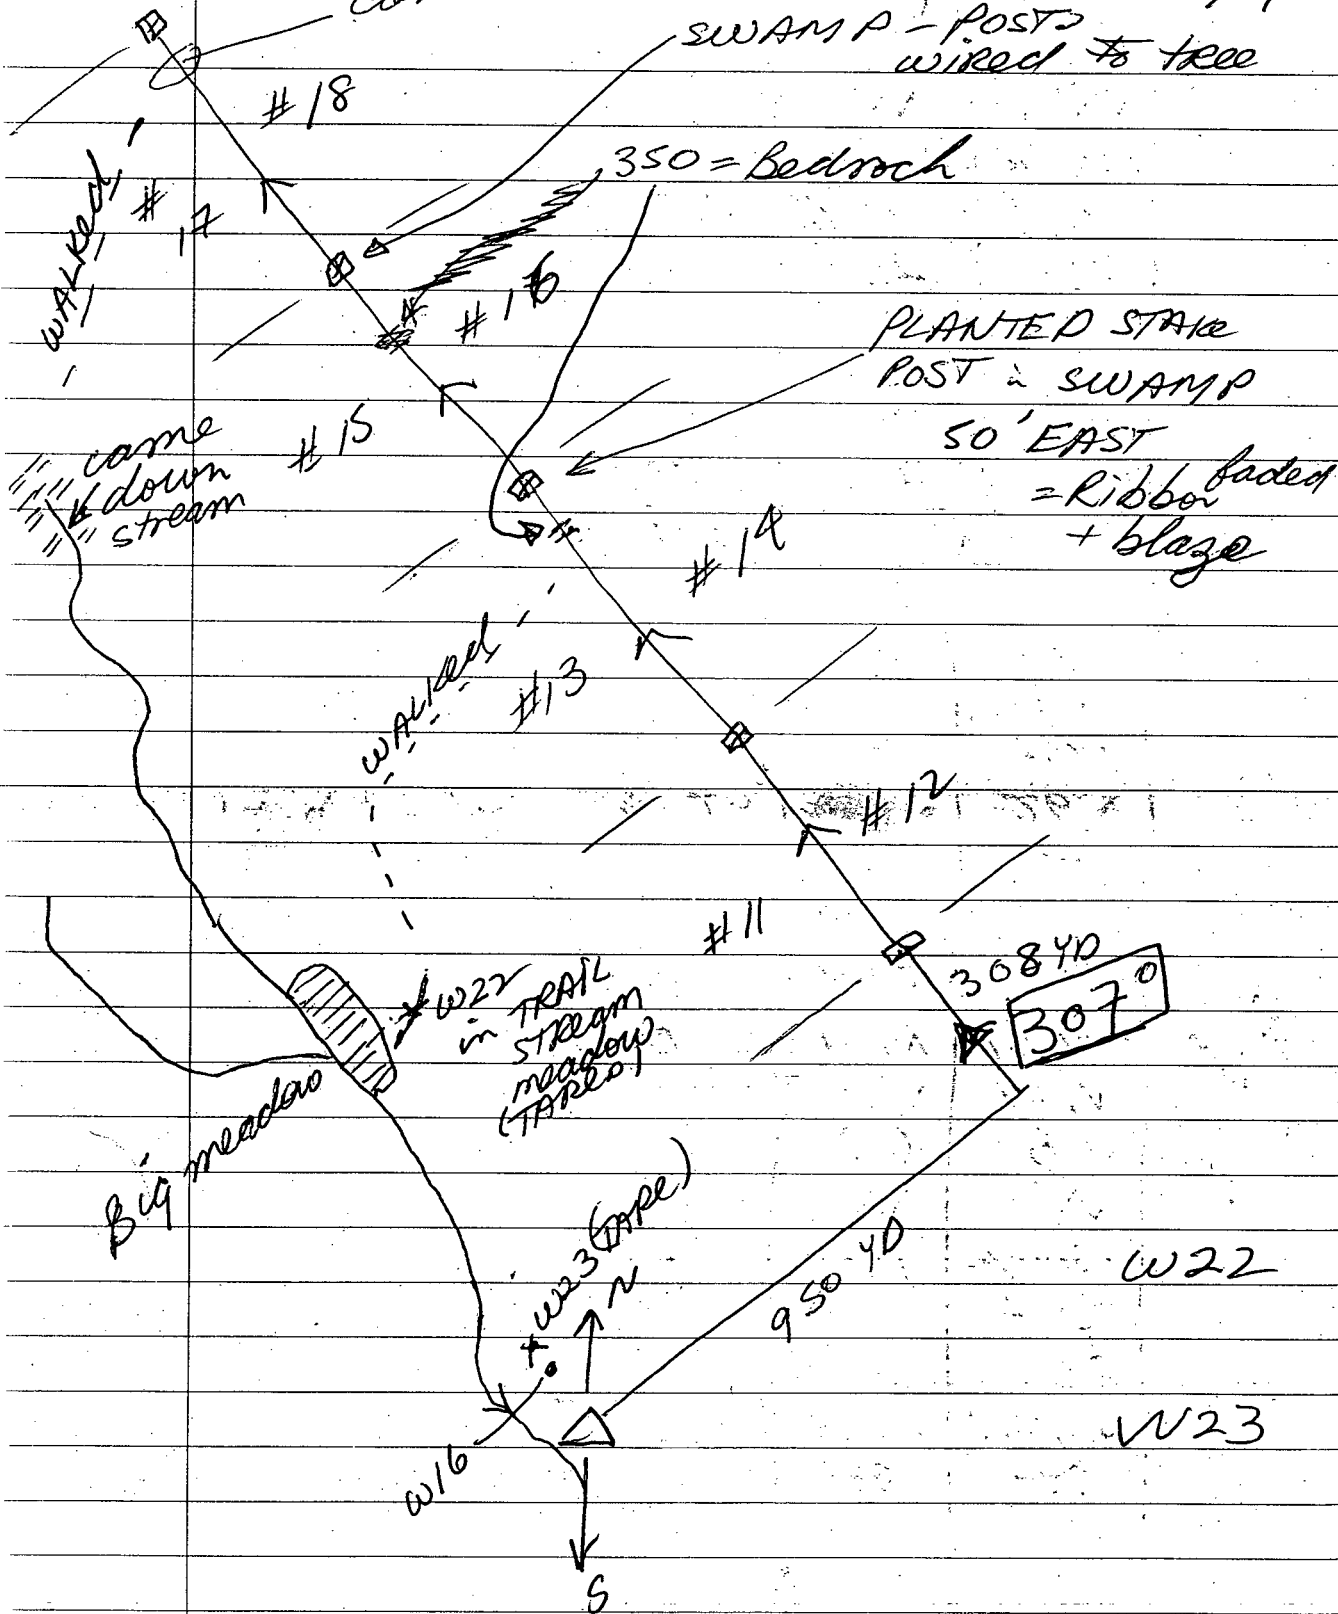 SWAMP - POSTS
wired to tree
#18
350 = Bedrock
WALKED
#
17
#16
PLANTED STAKE
POST in SWAMP
50' EAST
= Ribbon faded
+ blaze
#15
came
down
stream
#14
WALKED
#13
#12
#11
308 YD
307°
W22
in TRAIL
STREAM
meadow
(TAPED)
Big meadow
W23 (TAPE)
N
950 YD
W22
W23
W16
S